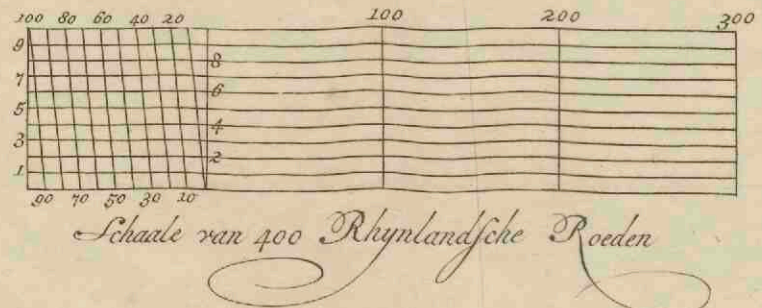 100 80 60 40 20 100 200 300
9
8
7
6
5
4
3
2
1
90 70 50 30 10
Schaale van 400 Rhynlandsche Roeden